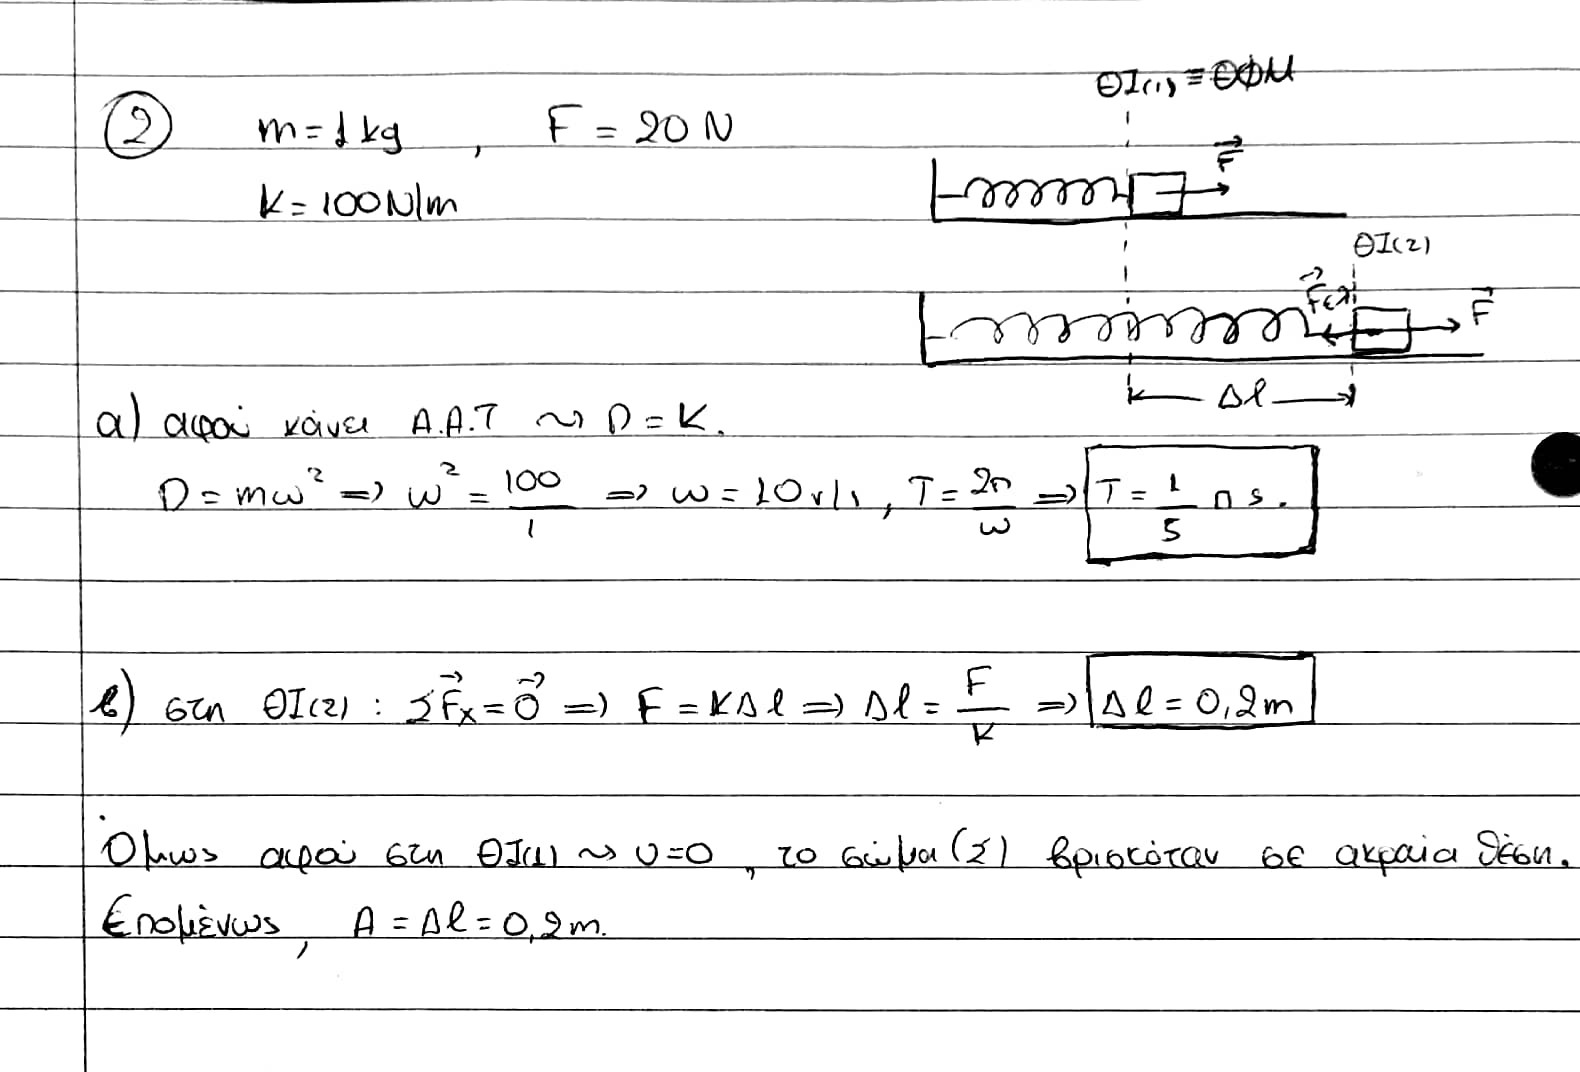 ② m=1kg, F = 20N
K= 100N/m
ΘΙ(1) ≡ ΘΦΜ
F
ΘΙ(2)
Fελ F
Δl
α) αφού κάνει Α.Α.Τ ~> D=K.
D=mω² => ω² = 100/1 => ω=10 r/s, T= 2π/ω => T= 1/5 π s.
β) στη ΘΙ(2) : ΣFx=0 => F=KΔl => Δl= F/K => Δl=0,2m
Όμως αφού στη ΘΙ(1) ~> υ=0, το σώμα (Σ) βρισκόταν σε ακραία θέση.
Επομένως, A=Δl=0,2m.